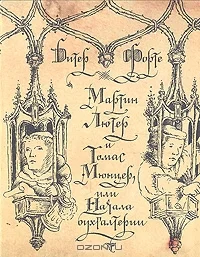 Дитер Форте
Мартин
Лютер
и Томас
Мюнцер,
или Начала
бухгалтерии
OZON.RU